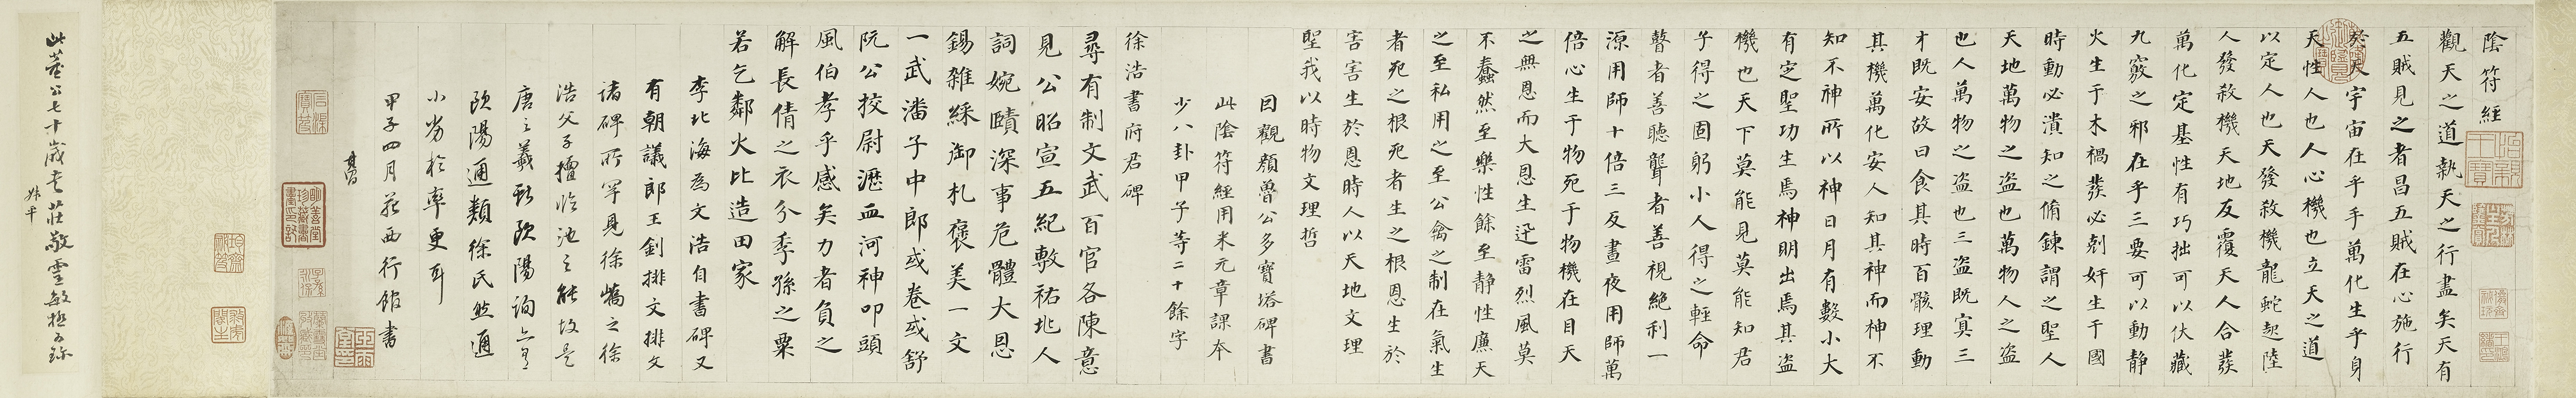 陰符經
觀天之道執天之行盡矣天有
五賊見之者昌五賊在心施行
於天宇宙在乎手萬化生乎身
天性人也人心機也立天之道
以定人也天發殺機龍蛇起陸
人發殺機天地反覆天人合發
萬化定基性有巧拙可以伏藏
九竅之邪在乎三要可以動靜
火生于木禍發必剋奸生于國
時動必潰知之脩鍊謂之聖人
天地萬物之盜也萬物人之盜
也人萬物之盜也三盜既冥三
才既安故曰食其時百骸理動
其機萬化安人知其神而神不
知不神所以神日月有數小大
有定聖功生焉神明出焉其盜
機也天下莫能見莫能知君
子得之固躬小人得之輕命
瞽者善聽聾者善視絕利一
源用師十倍三反晝夜用師萬
倍心生于物死于物機在目天
之無恩而大恩生迅雷烈風莫
不蠢然至樂性餘至靜性廉天
之至私用之至公禽之制在氣生
者死之根死者生之根恩生於
害害生於恩時人以天地文理
聖我以時物文理哲
因觀顏魯公多寶塔碑書
此陰符經用米元章課本
少八卦甲子等二十餘字
徐浩書府君碑
尋有制文武百官各陳意
見公昭宣五紀敷祐兆人
詞婉賾深事危體大恩
錫雜綵御札褒美一文
一武潘子中郎或卷或舒
阮公校尉瀝血河神叩頭
風伯孝乎感矣力者負之
解長倩之衣分季孫之粟
若乞鄰火比造田家
李北海為文浩自書碑又
有朝議郎王釗排文排文
諸碑所罕見徐嶠之徐
浩父子擅臨池之能故是
唐之羲獻歐陽詢
歐陽通類徐氏然通
小劣於率更耳
甲子四月苑西行館書
其昌
此董公七十歲書莊敬靈敏極可珍